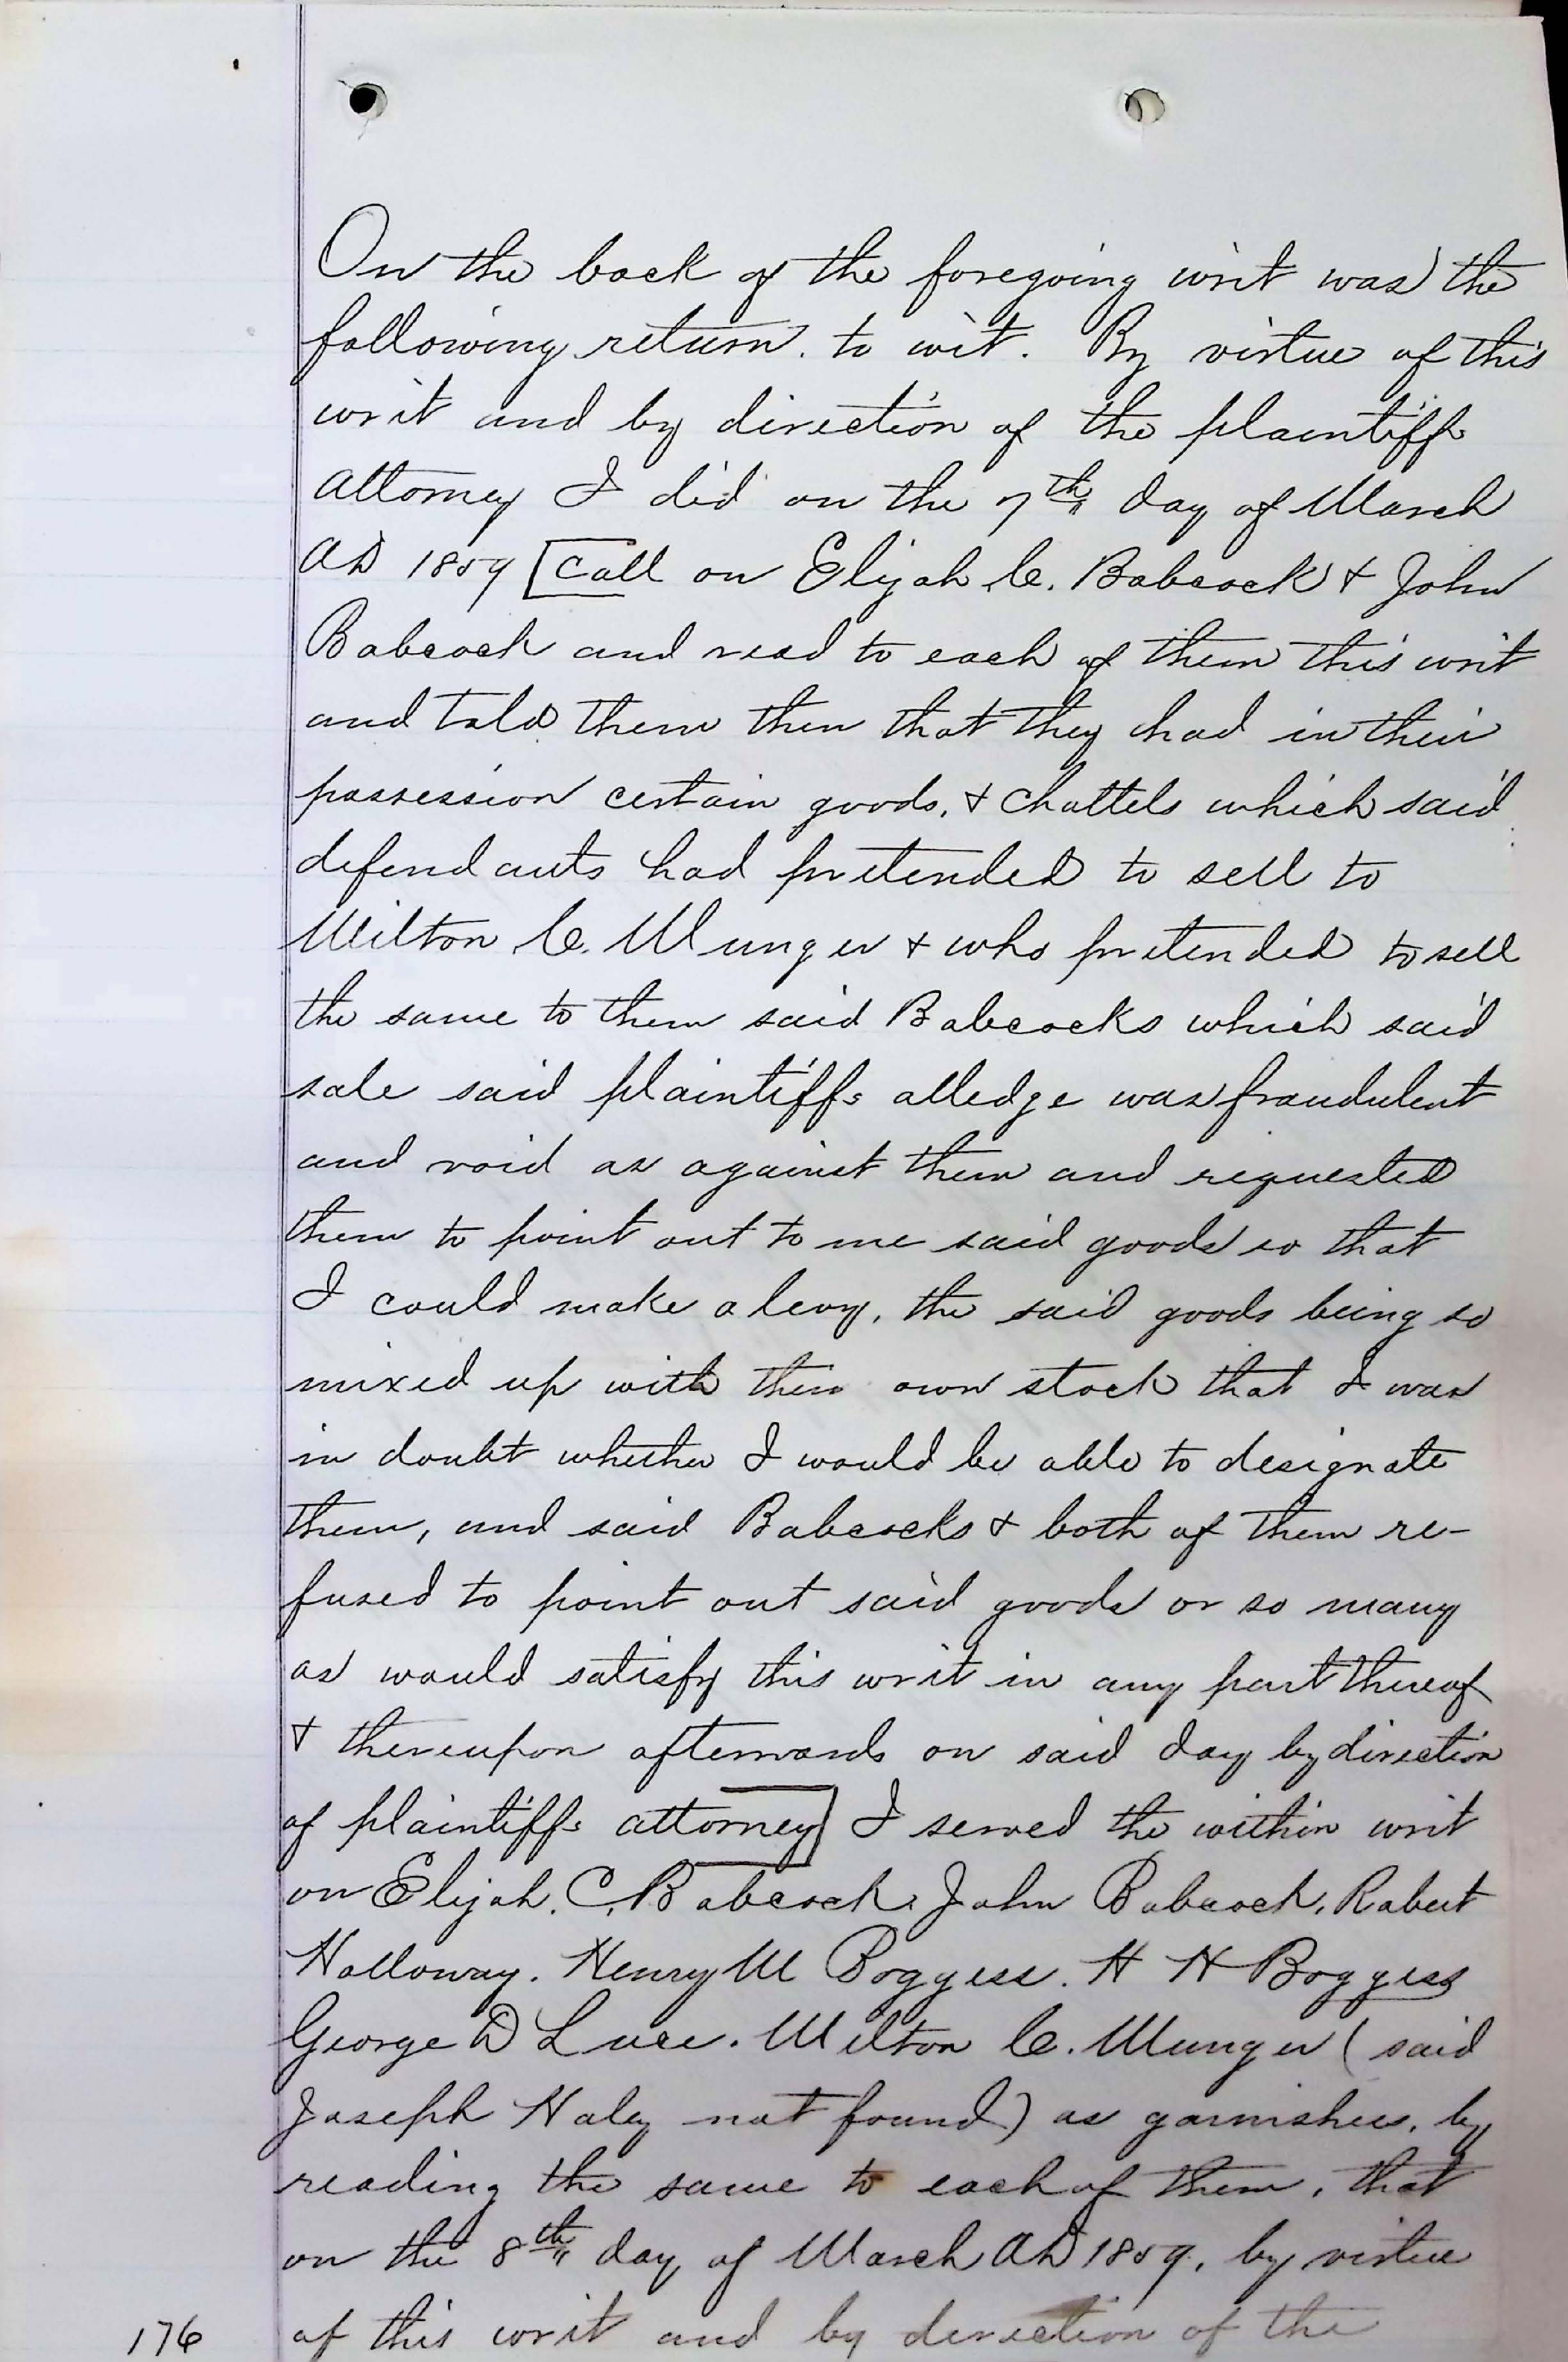 On the back of the foregoing writ was the
following return. to wit. By virtue of this
writ and by direction of the plaintiffs
attorney I did on the 7th day of March
AD 1859 [Call on Elijah C. Babcock & John
Babcock and read to each of them this writ
and told them then that they had in their
possession certain goods, & chattels which said
defendants had pretended to sell to
Milton C. Munger & who pretended to sell
the same to them said Babcocks which said
sale said plaintiffs alledge was fraudulent
and void as against them and requested
them to point out to me said goods so that
I could make a levy, the said goods being so
mixed up with their own stock that I was
in doubt whether I would be able to designate
them, and said Babcocks & both of them re-
fused to point out said goods or so many
as would satisfy this writ in any part thereof
& thereupon afterwards on said day by direction
of plaintiffs attorney] I served the within writ
on Elijah. C. Babcock. John Babcock, Robert
Holloway. Henry M Boggess. H H Boggess
George D Luce. Milton C. Munger (said
Joseph Haley not found) as garnishees, by
reading the same to each of them, that
on the 8th day of March AD 1859, by virtue
176 of this writ and by direction of the